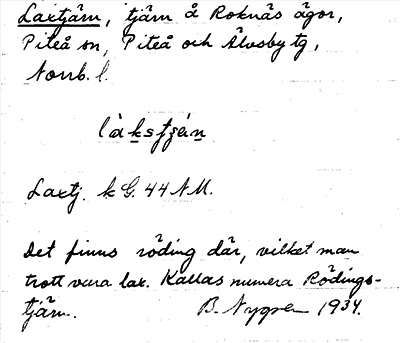 Laxtjärn, tjärn å Roknäs ägor,
Piteå sn, Piteå och Älvsby tg,
Norrb. l.
Laxtj. k G. 44 NM.
Det finns röding där, vilket man
trott vara lax. Kallas numera Rödings-
tjärn. B. Nygren 1934.